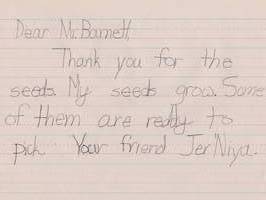 Dear Mr. Barnett,
Thank you for the
seeds. My seeds grow. Some
of them are ready to
pick. Your friend Jer'Niya.